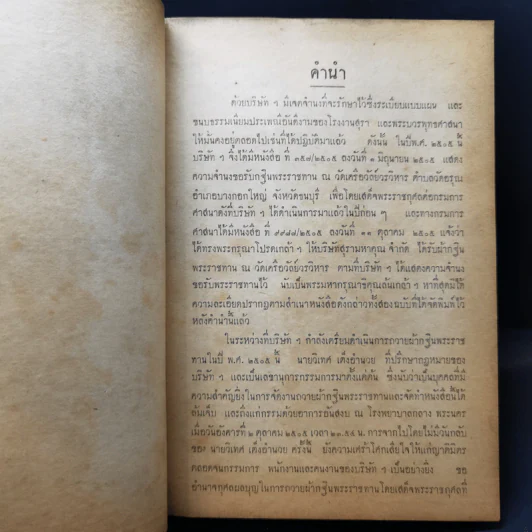 คำนำ
ด้วยบริษัท ฯ มีเจตจำนงที่จะรักษาไว้ซึ่งระเบียบแบบแผน และ
ขนบธรรมเนียมประเพณีอันดีงามของโรงงานสุรา และพระบวรพุทธศาสนา
ให้มั่นคงอยู่ตลอดไปเช่นที่ได้ปฏิบัติมาแล้ว ดังนั้น ในปีพ.ศ. ๒๕๐๕ นี้
บริษัท ฯ จึงได้มีหนังสือ ที่ ๓๕๘/๒๕๐๕ ลงวันที่ ๑ มิถุนายน ๒๕๐๕ แสดง
ความจำนงขอรับกฐินพระราชทาน ณ วัดเครือวัลย์วรวิหาร ตำบลวัดอรุณ
อำเภอบางกอกใหญ่ จังหวัดธนบุรี เพื่อโดยเสด็จพระราชกุศลต่อกรมการ
ศาสนาดังที่บริษัท ฯ ได้ดำเนินการมาแล้วในปีก่อน ๆ และทางกรมการ
ศาสนาได้มีหนังสือ ที่ ๙๘๘๘/๒๕๐๕ ลงวันที่ ๑๑ ตุลาคม ๒๕๐๕ แจ้งว่า
ได้ทรงพระกรุณาโปรดเกล้า ฯ ให้บริษัทสุรามหาคุณ จำกัด ได้รับผ้ากฐิน
พระราชทาน ณ วัดเครือวัลย์วรวิหาร ตามที่บริษัท ฯ ได้แสดงความจำนง
ขอรับพระราชทานไว้ นับเป็นพระมหากรุณาธิคุณล้นเกล้า ฯ หาที่สุดมิได้
ความละเอียดปรากฏตามสำเนาหนังสือดังกล่าวทั้งสองฉบับที่ได้จัดพิมพ์ไว้
หลังคำนำนี้แล้ว
ในระหว่างที่บริษัท ฯ กำลังเตรียมดำเนินการถวายผ้ากฐินพระราช
ทานในปี พ.ศ. ๒๕๐๕ นี้ นายวิเทศ เด็งอำนวย ที่ปรึกษากฎหมายของ
บริษัท ฯ และเป็นเลขานุการกรรมการมาตั้งแต่ต้น ซึ่งนับว่าเป็นบุคคลที่มี
ความสำคัญยิ่งในการจัดงานถวายผ้ากฐินพระราชทานและจัดทำหนังสือนี้ได้
ล้มเจ็บ และถึงแก่กรรมด้วยอาการอันสงบ ณ โรงพยาบาลกลาง พระนคร
เมื่อวันอังคารที่ ๒ ตุลาคม ๒๕๐๕ เวลา ๒๓.๕๔ น. การจากไปโดยไม่มีวันกลับ
ของ นายวิเทศ เด็งอำนวย ครั้งนี้ ยังความเศร้าโศกเสียใจให้แก่ญาติมิตร
ตลอดจนกรรมการ พนักงานและคนงานของบริษัท ฯ เป็นอย่างยิ่ง ขอ
อำนาจกุศลผลบุญในการถวายผ้ากฐินพระราชทานโดยเสด็จพระราชกุศลที่